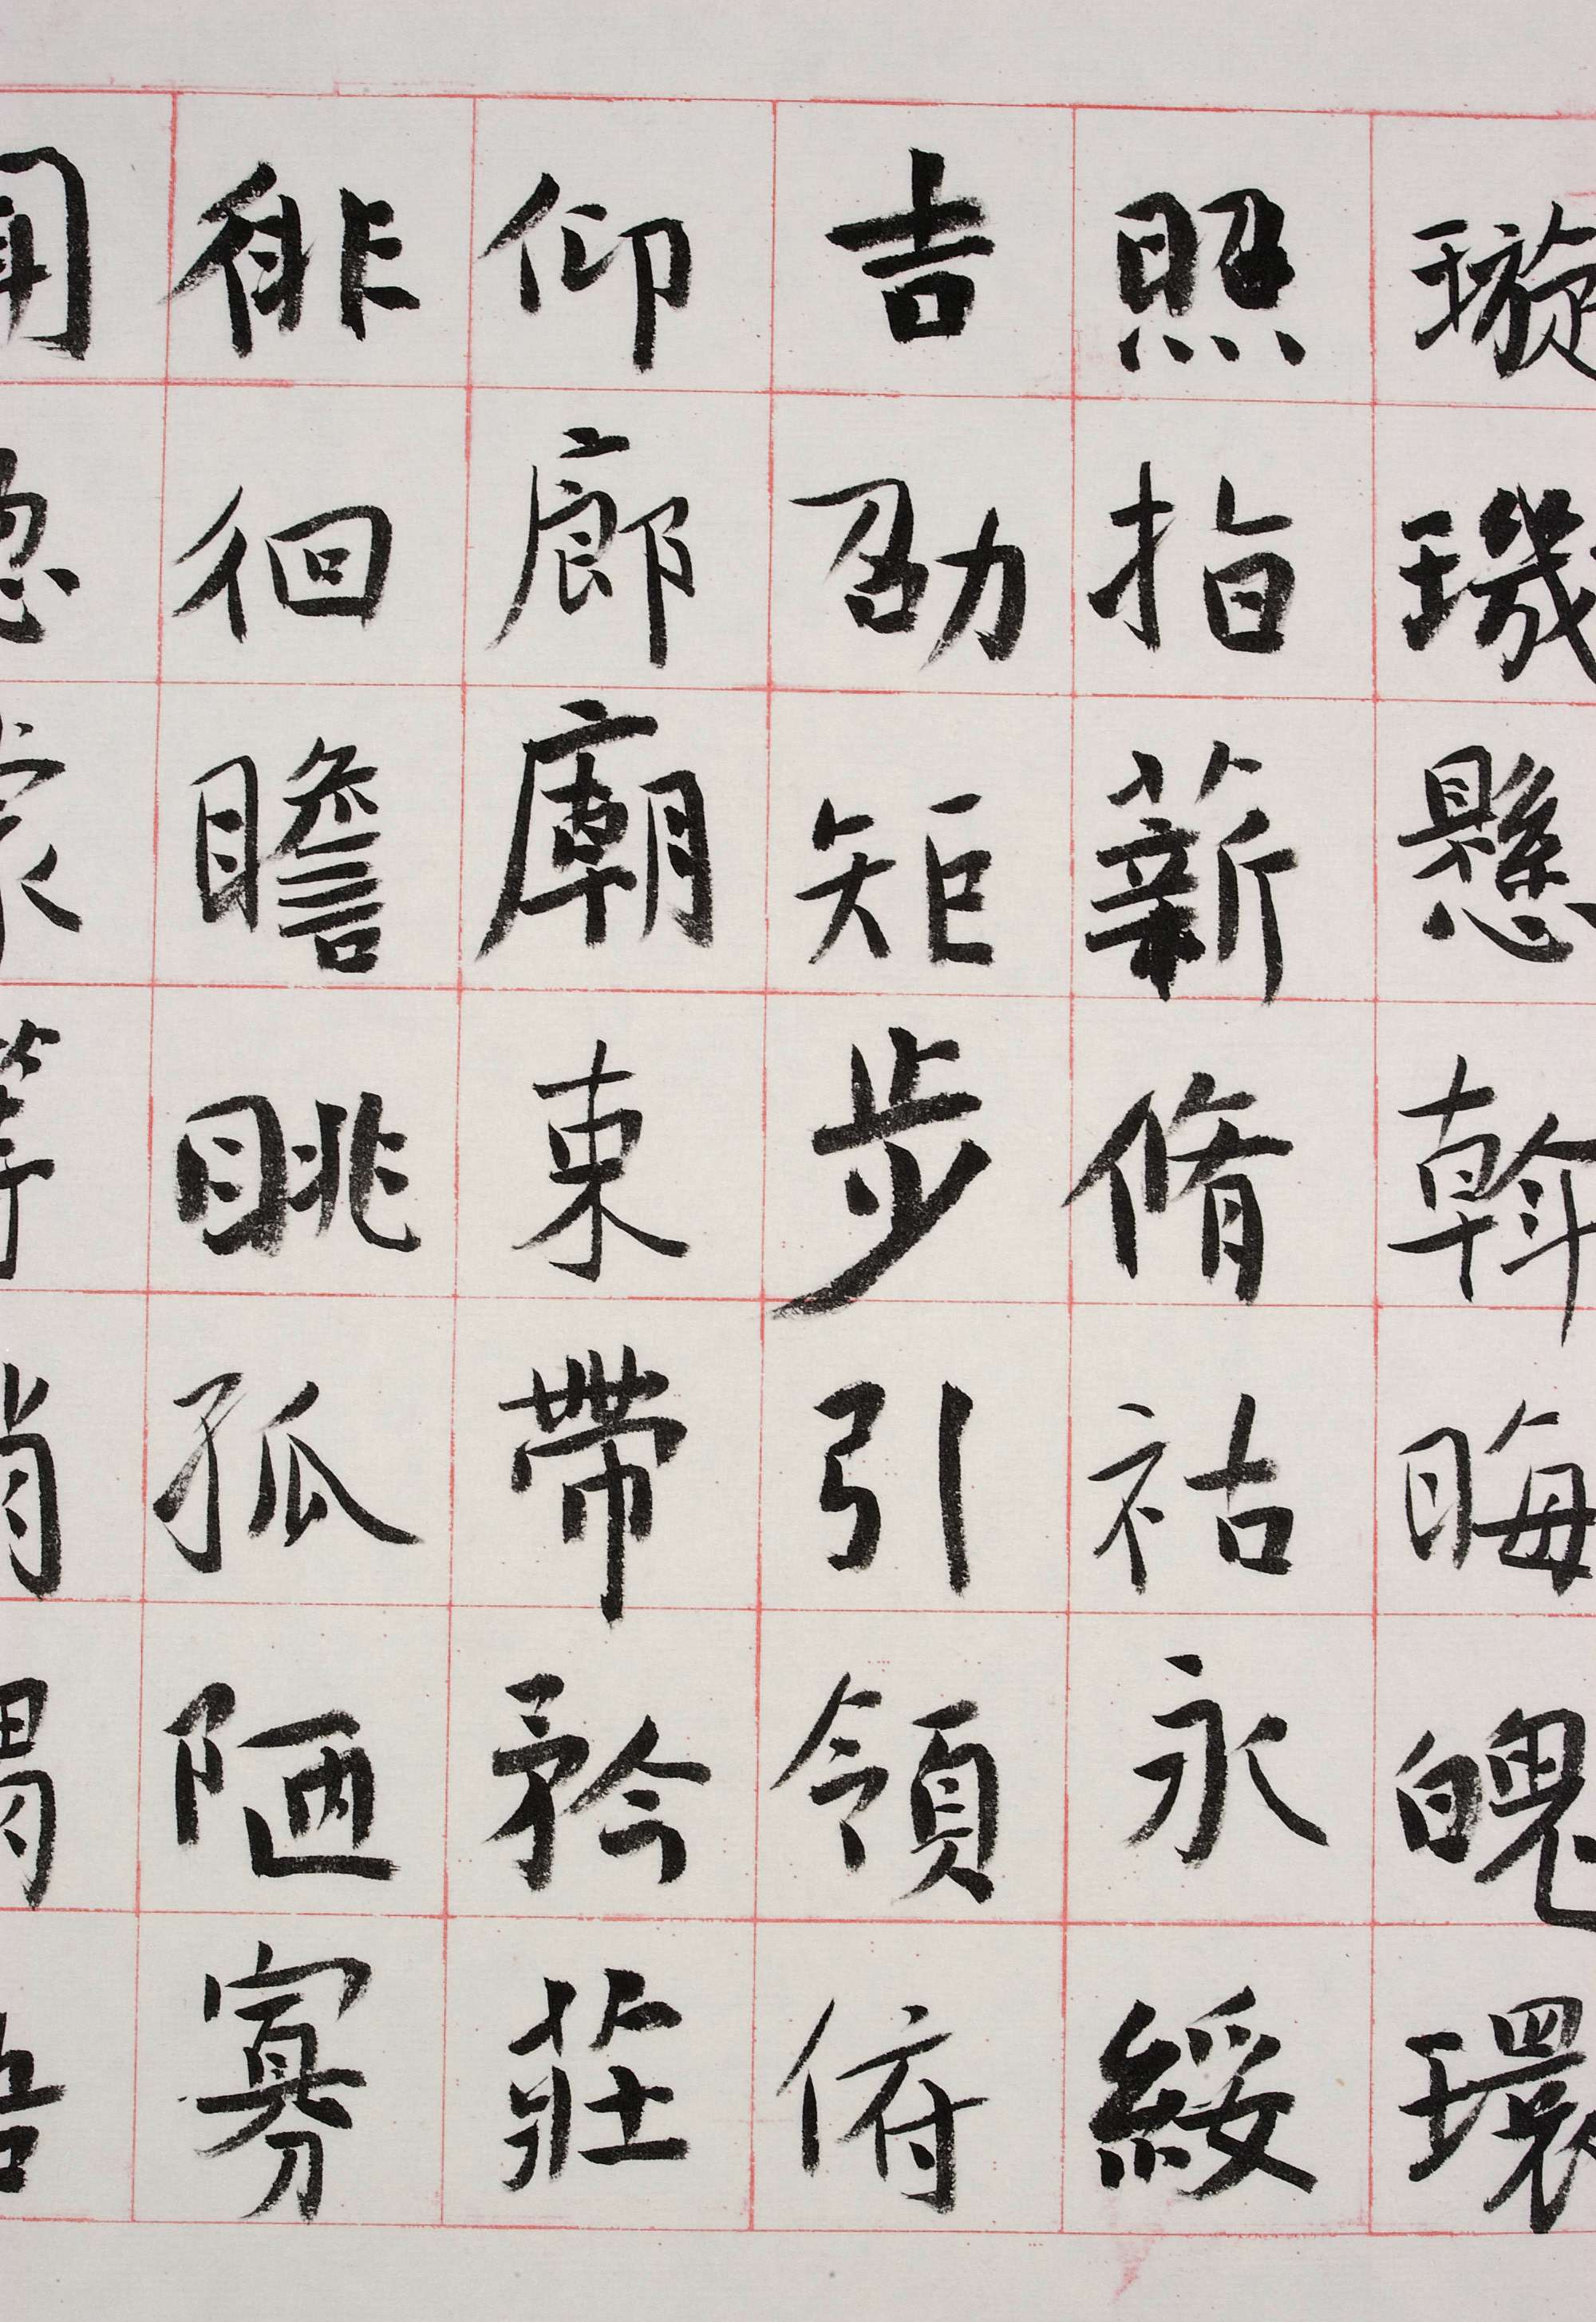 璇璣懸斡晦魄環
照指薪脩祜永綏
吉劭矩步引領俯
仰廊廟束帶矜莊
徘徊瞻眺孤陋寡
聞愚蒙等誚謂語